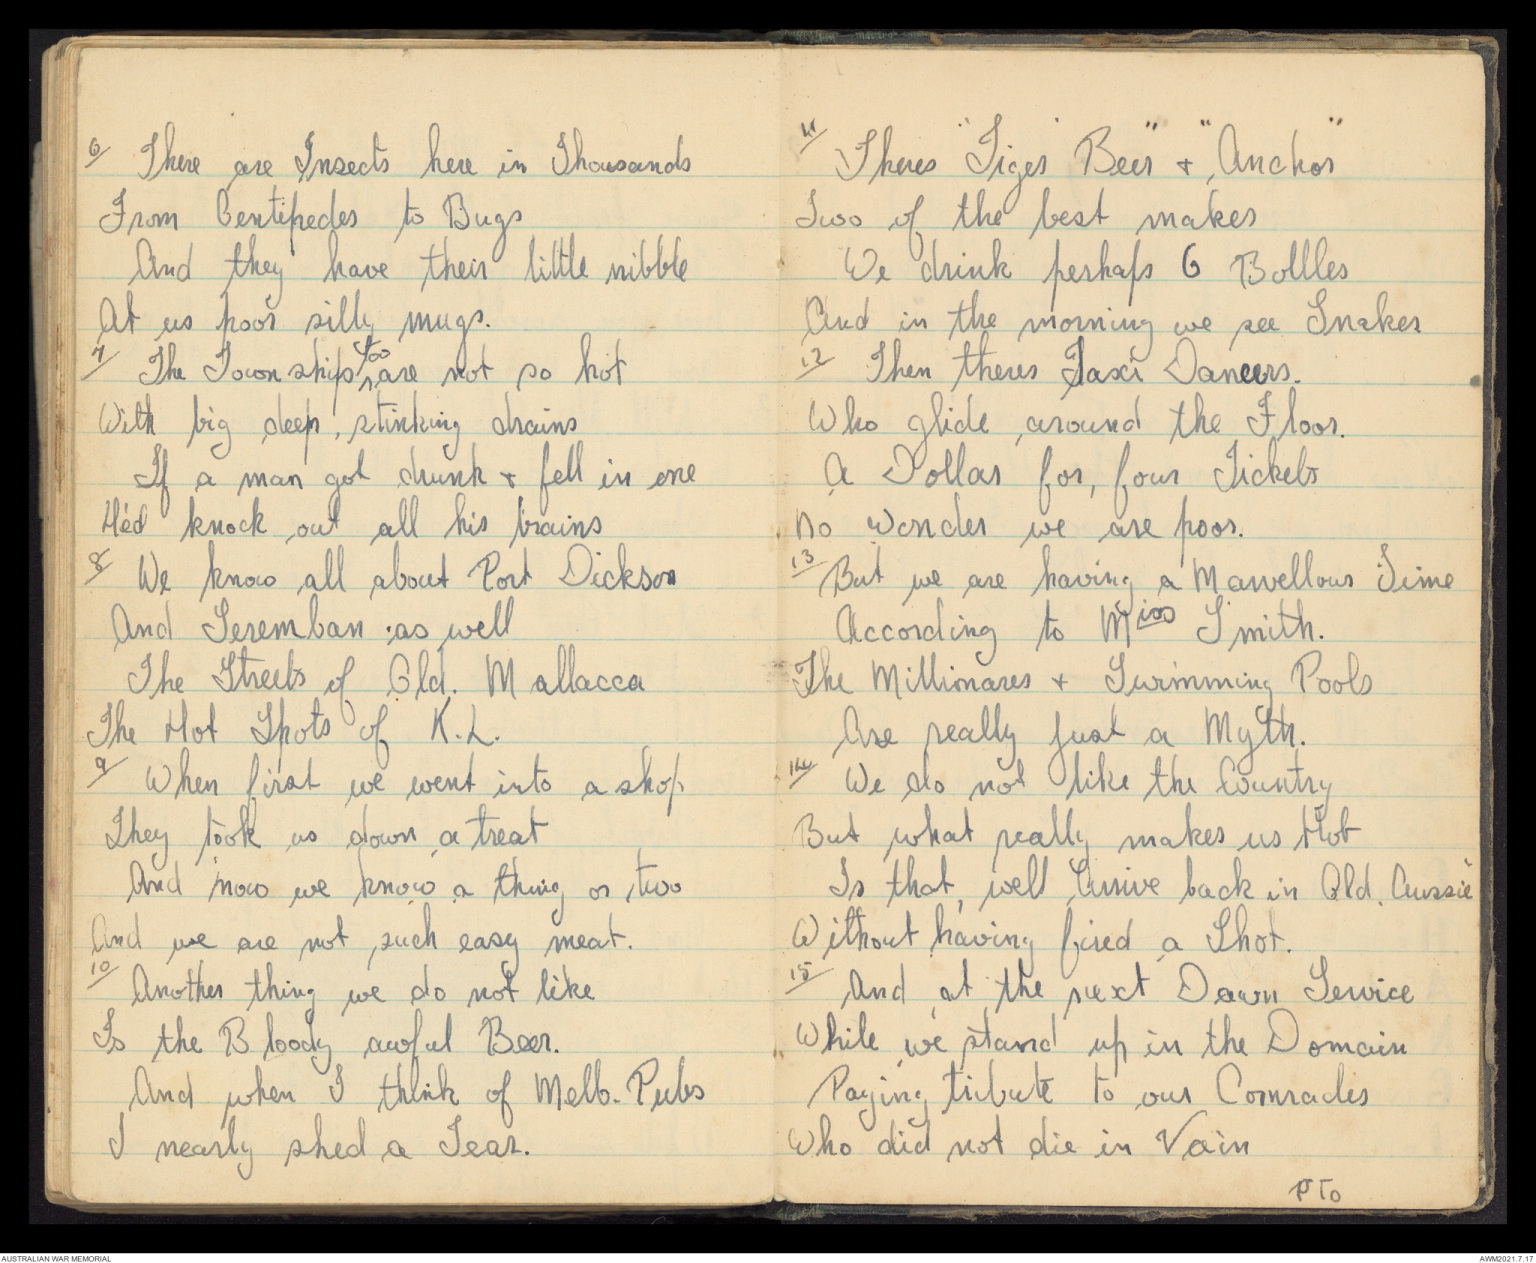 6/ There are Insects here in Thousands
From Centipedes to Bugs
And they have their little nibble
At us poor silly mugs.
7/ The Townships too are not so hot
With big deep, stinking drains
If a man got drunk & fell in one
He'd knock out all his brains
8/ We know all about Port Dickson
And Seremban as well
The Streets of Old. Mallacca
The Hot Spots of K.L.
9/ When first we went into a shop
They took us down a treat
And now we know a thing or two
And we are not such easy meat.
10/ Another thing we do not like
Is the Bloody awful Beer.
And when I think of Melb. Pubs
I nearly shed a Tear.
11/ Theres "Tiger Beer" & "Anchor"
Two of the best makes
We drink perhaps 6 Bottles
And in the morning we see Snakes
12/ Then theres Taxi Dancers.
Who glide around the Floor.
A Dollar for, four Tickets
No wonder we are poor.
13/ But we are having a Marvellous Time
According to Miss Smith.
The Millionares & Swimming Pools
Are really just a Myth.
14/ We do not like the Country
But what really makes us Hot
Is that, well Arrive back in Old. Aussie
Without having fired a Shot.
15/ And at the next Dawn Service
While we stand up in the Domain
Paying tribute to our Comrades
Who did not die in Vain
PTO
AUSTRALIAN WAR MEMORIAL
AWM2021.7.17